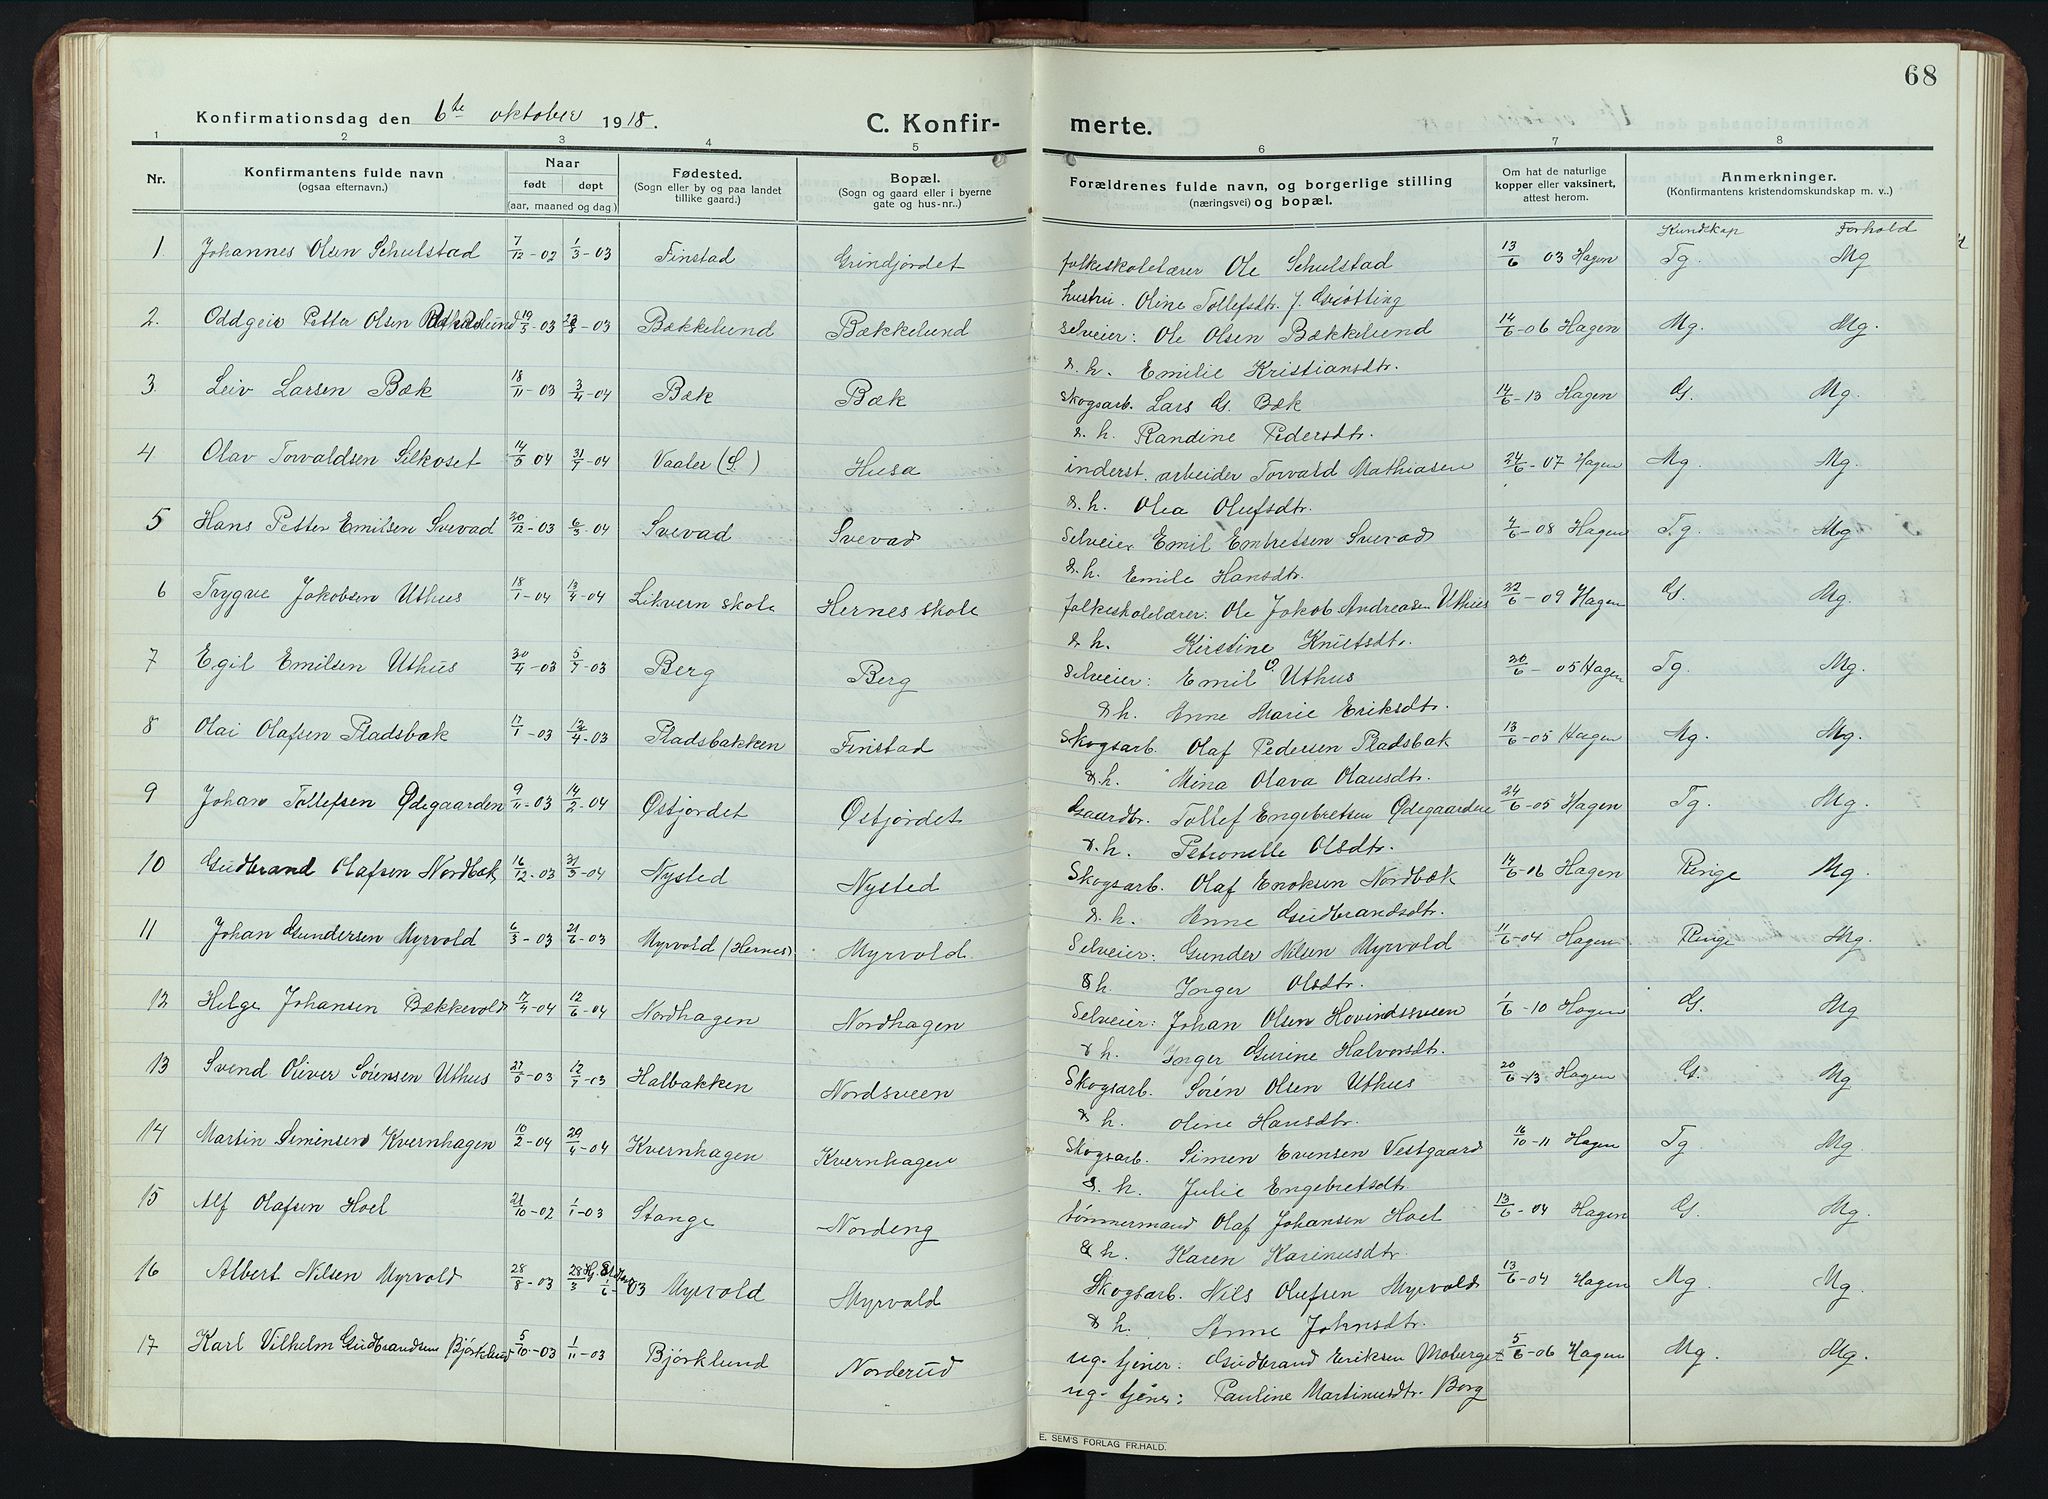 68
Konfirmationsdag den 6te oktober 1918.
C. Konfir- merte.
1 2 3 4 5 6 7 8
Nr.
Konfirmantens fulde navn (ogsaa efternavn.)
Naar født døpt (aar, maaned og dag.)
Fødested. (Sogn eller by og paa landet tillike gaard.)
Bopæl. (Sogn og gaard eller i byerne gate og hus-nr.)
Forældrenes fulde navn, og borgerlige stilling (næringsvei) og bopæl.
Om hat de naturlige kopper eller vaksinert, attest herom.
Anmerkninger. (Konfirmantens kristendomskundskap m. v..)
Kundskap Forhold
1 Johannes Olsen Schulstad 7/12-02 1/3-03 Finstad Grindjordet folkeskolelærer Ole Schulstad 13/6 03 Hagen Tg. Mg
hustru. Oline Tollefsdtr. f. Grøtting
2. Oddgeir Petter Olsen 03 03 Bækkelund Bækkelund Selveier: Ole Olsen Bækkelund 14/6-06 Hagen Mg. Mg.
& h. Emilie Kristiansdtr.
3. Leiv Larsen Bæk 18/11-03 3/4-04 Bæk Bæk Skogsarb. Lars G. Bæk 14/6-13 Hagen G. Mg.
& h. Randine Pedersdtr.
4 Olav Torvaldsen Silkoset 14/5 04 31/7-04 Vaaler (S.) Husa inderst. arbeider Torvald Mathiasen 24/6-07 Hagen Mg. Mg.
& h. Olea Olufsdtr.
5 Hans Petter Emilsen Svevad 20/12-03 6/3-04 Svevad Svevad Selveier Emil Embretsen Svevad 4/6-08 Hagen Tg. Mg
& h. Emile Hansdtr.
6 Trygve Jakobsen Uthus 18/1-04 13/4-04 Likvern skole Hernes skole folkeskolelærer: Ole Jakob Andreasen Uthus 22/6-09 Hagen G. Mg.
& h. Kirstine Knutsdtr.
7 Egil Emilsen Uthus 30/4-03 5/7-03 Berg Berg Selveier: Emil O. Uthus 20/6-05 Hagen Tg. Mg.
& h. Anne Marie Eriksdtr.
8 Olai Olafsen Pladsbak 17/1-03 12/4-03 Pladsbakken Finstad Skogsarb. Olaf Pedersen Pladsbak 13/6-05 Hagen Mg. Mg.
& h. Mina Olava Olausdtr.
9 Johan Tollefsen Ødegaarden 9/11-03 14/2-04 Østjordet Østjordet Gaardbr. Tollef Engebretsen Ødegaarden 24/6-05 Hagen Tg. Mg.
& h. Petronelle Olsdtr.
10 Gudbrand Olafsen Nordbæk 16/12-03 31/3-04 Nysted Nysted Skogsarb. Olaf Enoksen Nordbæk 14/6-06 Hagen Ringe Mg.
& h. Anne Gudbrandsdtr.
11 Johan Gundersen Myrvold 6/3-03 21/6-03 Myrvold (Hernes) Myrvold. Selveier: Gunder Nilsen Myrvold 11/6-04 Hagen Ringe Mg.
& h. Inger Olsdtr.
12 Helge Johansen Bækkevold 7/4-04 12/6-04 Nordhagen Nordhagen Selveier: Johan Olsen Hovindsveen 1/6-10 Hagen G. Mg
& h. Inger Gurine Halvorsdtr.
13 Svend Oliver Sørensen Uthus 03 12/7-03 Halbakken Nordsveen Skogsarb. Sørén Olsen Uthus 20/6-13 Hagen G. Mg
& h. Oline Hansdtr.
14 Martin Simensen Kvernhagen 10/2-04 29/4-04 Kvernhagen Kvernhagen Skogsarb. Simen Evensen Vestgaard 16/10-11 Hagen Tg. Mg.
& h. Julie Engebretsdtr.
15 Alf Olafsen Hoel 21/10-02 1/1-03 Stange Nordeng tømmermand Olaf Johansen Hoel 13/6-04 Hagen G. Mg.
& h. Karen Karinusdtr.
16 Albert Nilsen Myrvold 28/8-03 03 Myrvold Myrvold Skogsarb. Nils Olufsen Myrvold 13/6-04 Hagen Mg. Mg.
& h. Anne Johnsdtr.
17 Karl Vilhelm Gudbrandsen Bjørklund 5/10-03 1/11-03 Bjørklund Norderud ug. tjener: Gudbrand Eriksen Moberget 5/6-06 Hagen Mg. Mg.
ug. tjener: Pauline Martinusdtr. Borg
E. SEM'S FORLAG FR.HALD.